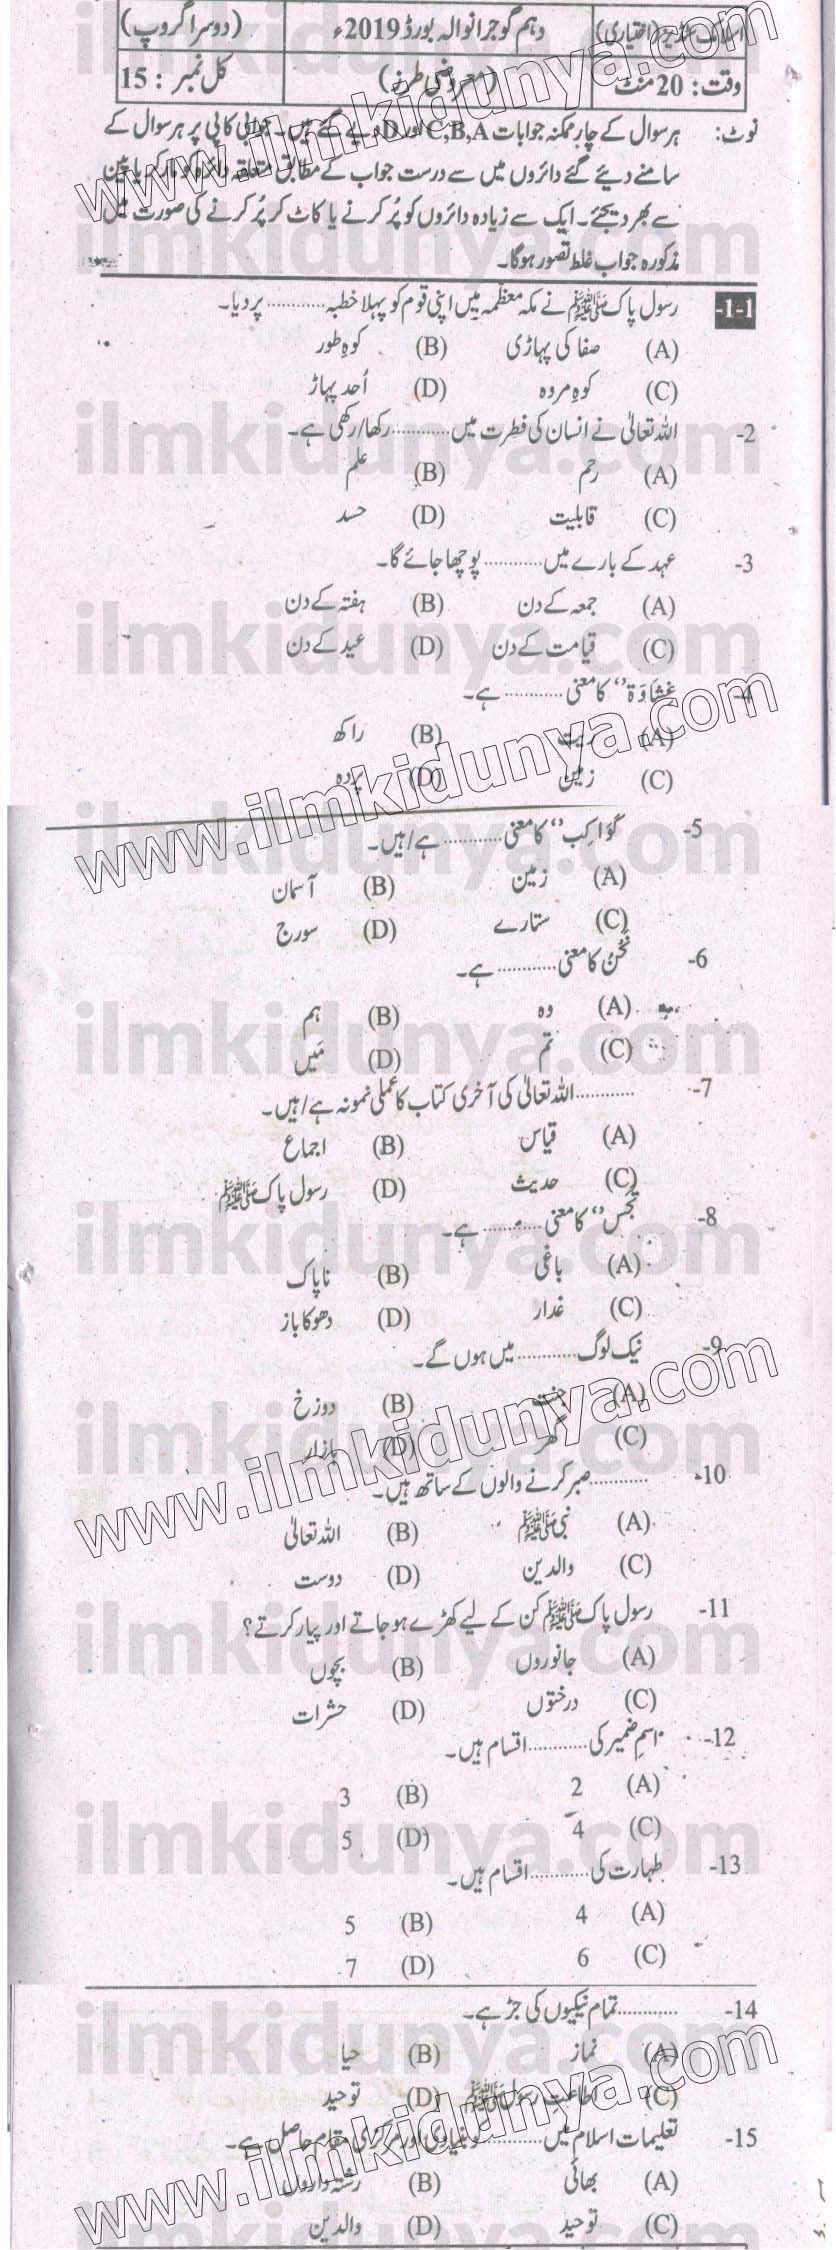 اسلامک سٹڈیز (اختیاری) دہم گوجرانوالہ بورڈ 2019ء (دوسرا گروپ)
وقت: 20 منٹ (معروضی طرز) کل نمبر: 15
نوٹ: ہر سوال کے چار ممکنہ جوابات C,B,A اور D دیے گئے ہیں۔ جوابی کاپی پر ہر سوال کے
سامنے دیئے گئے دائروں میں سے درست جواب کے مطابق متعلقہ دائرہ کو مارکر یا پین
سے بھر دیجئے۔ ایک سے زیادہ دائروں کو پُر کرنے یا کاٹ کر پُر کرنے کی صورت میں
مذکورہ جواب غلط تصور ہوگا۔
1-1- رسول پاک ﷺ نے مکہ معظمہ میں اپنی قوم کو پہلا خطبہ ............ پر دیا۔
(A) صفا کی پہاڑی (B) کوہِ طور
(C) کوہِ مروہ (D) اُحد پہاڑ
2- اللہ تعالیٰ نے انسان کی فطرت میں ............ رکھا/رکھی ہے۔
(A) رحم (B) علم
(C) قابلیت (D) حسد
3- عہد کے بارے میں ............ پوچھا جائے گا۔
(A) جمعہ کے دن (B) ہفتہ کے دن
(C) قیامت کے دن (D) عید کے دن
4- غِشَاوَۃ’’ کا معنی ............ ہے۔
(A) ریت (B) راکھ
(C) زمین (D) پردہ
5- کَوَاکِب’’ کا معنی ............ ہے/ہیں۔
(A) زمین (B) آسمان
(C) ستارے (D) سورج
6- نَحْنُ کا معنی ............ ہے۔
(A) وہ (B) ہم
(C) تم (D) مَیں
7- ............ اللہ تعالیٰ کی آخری کتاب کا عملی نمونہ ہے/ہیں۔
(A) قیاس (B) اجماع
(C) حدیث (D) رسول پاک ﷺ
8- نَجَس’’ کا معنی ............ ہے۔
(A) باغی (B) ناپاک
(C) غدار (D) دھوکا باز
9- نیک لوگ ............ میں ہوں گے۔
(A) جنت (B) دوزخ
(C) گھر (D) بازار
10- ............ صبر کرنے والوں کے ساتھ ہیں۔
(A) نبی ﷺ (B) اللہ تعالیٰ
(C) والدین (D) دوست
11- رسول پاک ﷺ کن کے لیے کھڑے ہو جاتے اور پیار کرتے؟
(A) جانوروں (B) بچوں
(C) درختوں (D) حشرات
12- اسمِ ضمیر کی ............ اقسام ہیں۔
(A) 2 (B) 3
(C) 4 (D) 5
13- طہارت کی ............ اقسام ہیں۔
(A) 4 (B) 5
(C) 6 (D) 7
14- ............ تمام نیکیوں کی جڑ ہے۔
(A) نماز (B) حیا
(C) اطاعت رسول ﷺ (D) توحید
15- تعلیمات اسلام میں ............ کو بنیادی اور مرکزی مقام حاصل ہے۔
(A) بھائی (B) رشتہ داروں
(C) توحید (D) والدین
www.ilmkidunya.com
www.ilmkidunya.com
www.ilmkidunya.com
www.ilmkidunya.com
ilmkidunya.com
ilmkidunya.com
ilmkidunya.com
ilmkidunya.com
ilmkidunya.com
ilmkidunya.com
ilmkidunya.com
ilmkidunya.com
ilmkidunya.com
ilmkidunya.com
ilmkidunya.com